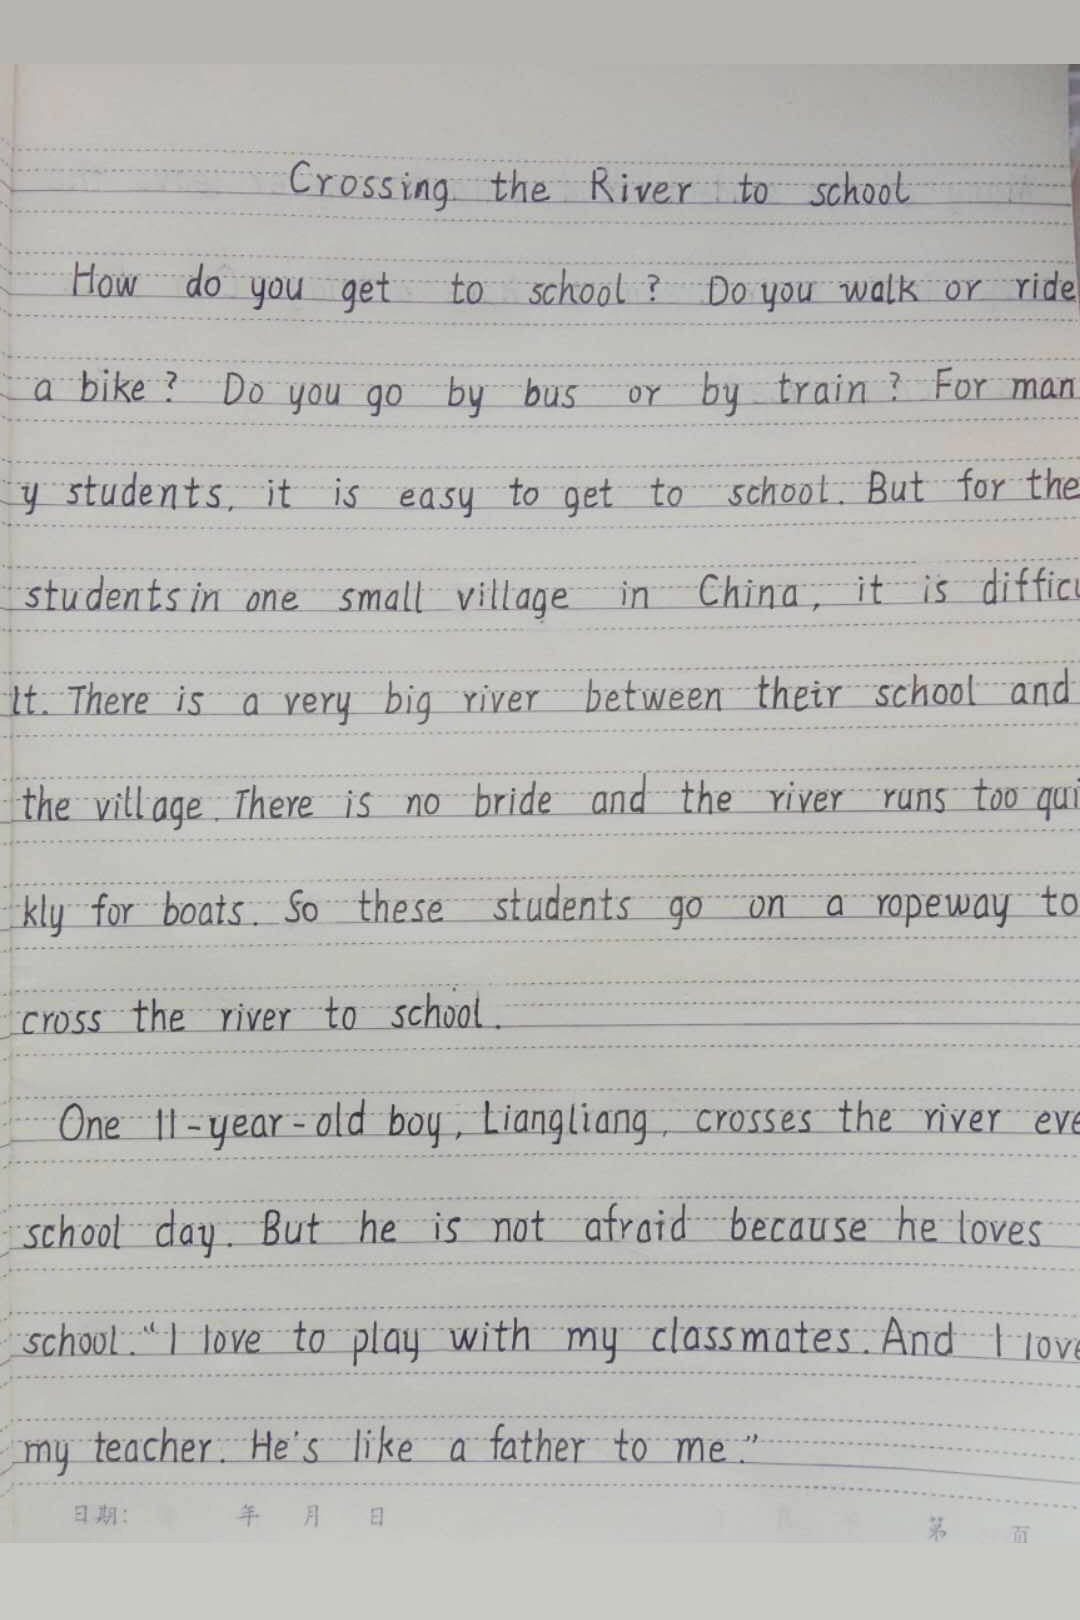 Crossing the River to school
How do you get to school? Do you walk or ride
a bike? Do you go by bus or by train? For man
y students, it is easy to get to school. But for the
students in one small village in China, it is difficu
lt. There is a very big river between their school and
the village. There is no bride and the river runs too qui
kly for boats. So these students go on a ropeway to
cross the river to school.
One 11-year-old boy, Liangliang, crosses the river eve
school day. But he is not afraid because he loves
school. "I love to play with my classmates. And I love
my teacher. He's like a father to me."
日期: 年 月 日
第 页